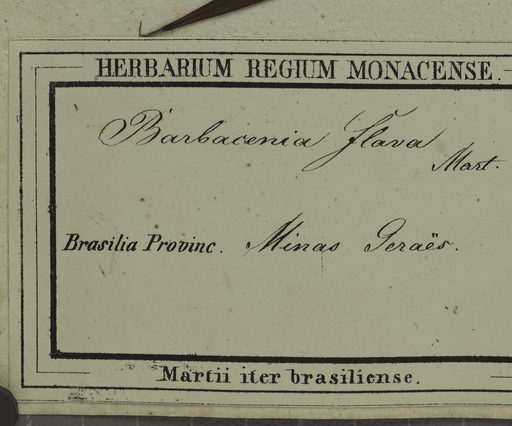 HERBARIUM REGIUM MONACENSE.
Barbacenia flava
Mart.
Brasilia Provinc. Minas Geraës.
Martii iter brasiliense.